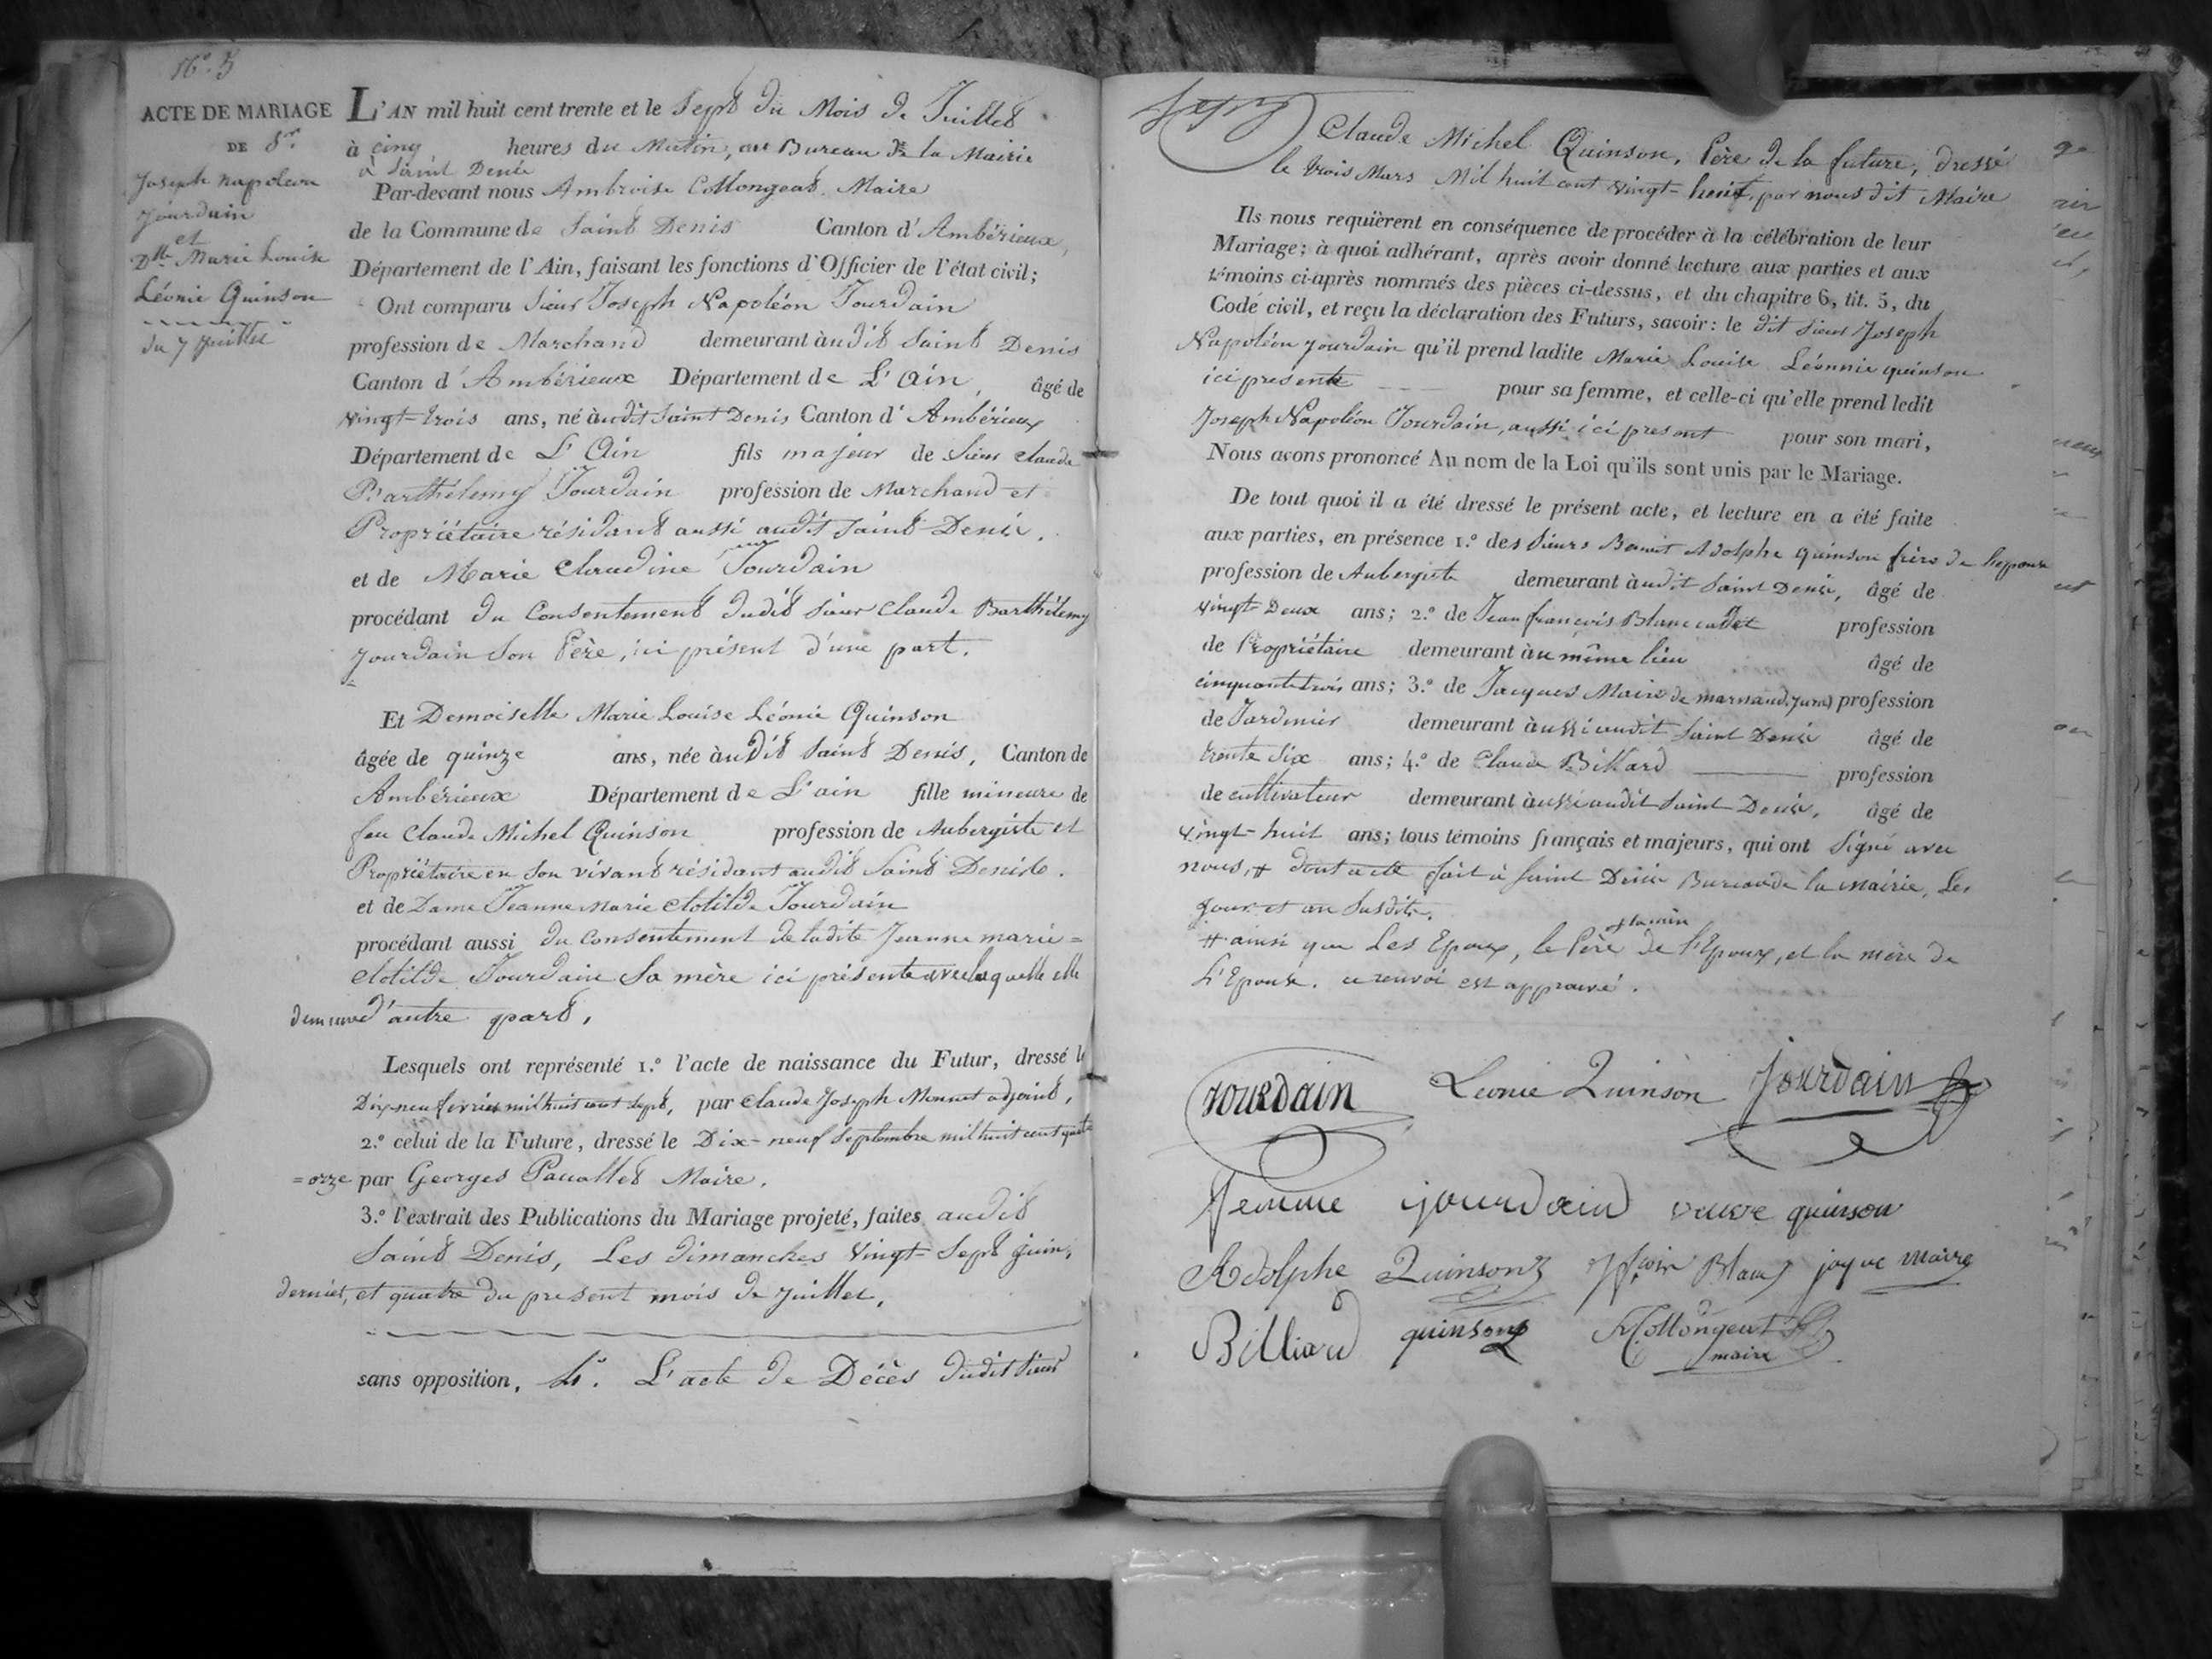 N.° 5
ACTE DE MARIAGE
DE S.r
Joseph napoleon
Jourdain
et
Dlle Marie Louise
Léonie Quinson
du 7 Juillet
L'AN mil huit cent trente et le Sept du Mois de Juillet
à cinq heures du Matin, au Bureau de la Mairie
à Saint Denis
Par-devant nous Ambroise Collongeat Maire
de la Commune de Saint Denis Canton d'Ambérieux,
Département de l'Ain, faisant les fonctions d'Officier de l'état civil;
Ont comparu Sieur Joseph Napoléon Jourdain
profession de Marchand demeurant àudit Saint Denis
Canton d'Ambérieux Département de L'Ain, âgé de
vingt-trois ans, né àudit Saint Denis Canton d'Ambérieux
Département de L'Ain fils majeur de Sieur Claude
Barthélemy Jourdain profession de Marchand et
Propriétaire résidant aussi audit Saint Denis.
et de Marie Claudine Jourdain
procédant du Consentement dudit sieur Claude Barthélemy
Jourdain Son Père, ici présent d'une part.
Et Demoiselle Marie Louise Léonie Quinson
âgée de quinze ans, née àudit Saint Denis, Canton de
Ambérieux Département de L'ain fille mineure de
feu Claude Michel Quinson profession de Aubergiste et
Propriétaire en Son vivant résidant audit Saint Denis.
et de Dame Jeanne Marie Clotilde Jourdain
procédant aussi du Consentement de ladite Jeanne marie=
Clotilde Jourdain Sa mère ici présente avec laquelle elle
demeure d'autre part.
Lesquels ont représenté 1.° l'acte de naissance du Futur, dressé le
Dix-neuf février mil huit cent Sept, par Claude Joseph Monnet adjoint,
2.° celui de la Future, dressé le Dix-neuf Septembre mil huit cent quat
=orze par Georges Maire.
3.° l'extrait des Publications du Mariage projeté, faites audit
Saint Denis, Les dimanches vingt-Sept juin,
dernier, et quatre du present mois de Juillet,
sans opposition. 4.° L'acte de Décès dudit Sieur
Claude Michel Quinson, Père de la future, dressé
le trois Mars Mil huit cent vingt-huit, par nous dit Maire
Ils nous requièrent en conséquence de procéder à la célébration de leur
Mariage; à quoi adhérant, après avoir donné lecture aux parties et aux
témoins ci-après nommés des pièces ci-dessus, et du chapitre 6, tit. 5, du
Code civil, et reçu la déclaration des Futurs, savoir: le dit Sieur Joseph
Napoléon Jourdain qu'il prend ladite Marie Louise Léonnie quinson
ici presente pour sa femme, et celle-ci qu'elle prend ledit
Joseph Napoléon Jourdain, aussi ici present pour son mari,
Nous avons prononcé Au nom de la Loi qu'ils sont unis par le Mariage.
De tout quoi il a été dressé le présent acte, et lecture en a été faite
aux parties, en présence 1.° des Sieurs Benoit Adolphe quinson frère de l'epouse
profession de Aubergiste demeurant àudit Saint Denis, âgé de
vingt-Deux ans; 2.° de Jean françois Blanc cadet profession
de Propriétaire demeurant àu même lieu âgé de
cinquante trois ans; 3.° de Jacques Maire de marnaud (jura) profession
de Jardinier demeurant àussi audit Saint Denis âgé de
trente Six ans; 4.° de Claude Billard profession
de cultivateur demeurant àussi audit Saint Denis, âgé de
vingt-huit ans; tous témoins français et majeurs, qui ont Signé avec
nous, # dont acte fait à Saint Denis Bureau de la mairie, Les
jour et an Susdits.
# ainsi que Les Epoux, le Père de l'Epoux, et la mère de
L'Epouse. ce renvoi est approuvé.
Jourdain Léonie Quinson Jourdain
femme jourdain veuve quinson
Adolphe Quinson Blanc jaque maire
Billiard quinson Collongeat
maire